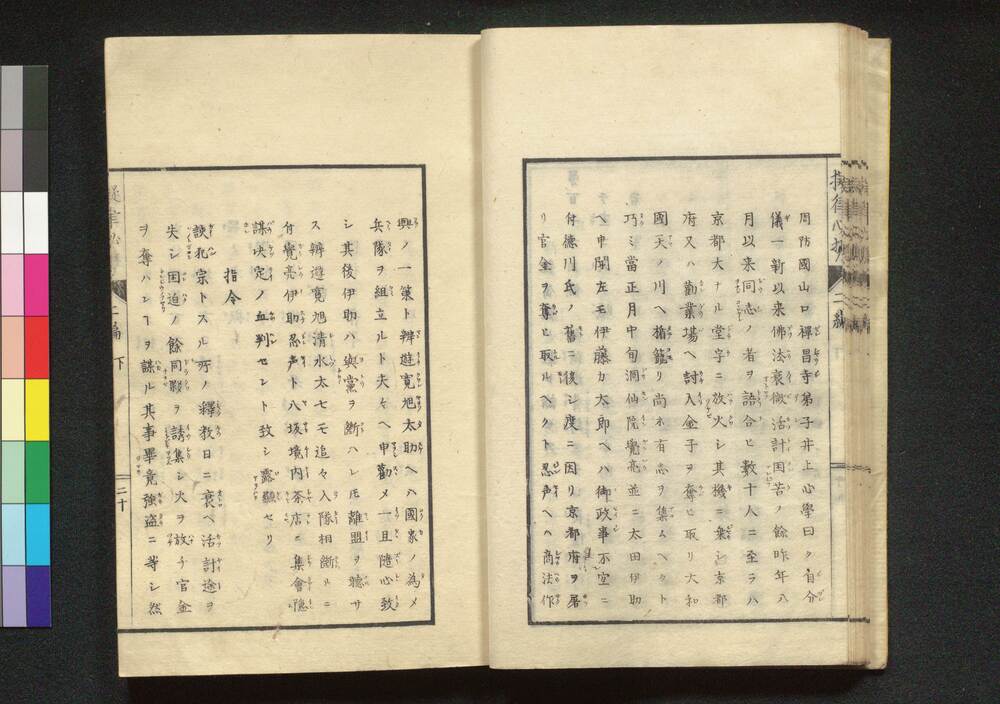 周防國山口禪昌寺弟子井上心學曰ク自分
儀一新以来佛法衰微活計困苦ノ餘昨年八
月以来同志ノ者ヲ語合ヒ數十人ニ至ラハ
京都大ナル堂宇ニ放火シ其機ニ乗シ京都
府又ハ勸業場ヘ討入金子ヲ奪ヒ取リ大和
國天ノ川ヘ楯籠リ尚ホ有志ヲ集ムヘクト
巧ミ當正月中旬洞仙院覺亮並ニ太田伊助
ヘ申聞左モ伊藤力太郎ヘハ御政事不宜ニ
付德川氏ノ舊ニ復シ度ニ因リ京都府ヲ屠
リ官金ヲ奪ヒ取ルヘクト忍声ヘハ商法作
興ノ一策ト辨遊寛旭太助ヘハ國家ノ為メ
兵隊ヲ組立ルト夫々ヘ申勸メ一旦隨心致
シ其後伊助ハ與黨ヲ斷ハレ𪜈離盟ヲ聽サ
ス辨遊寛旭清水太七モ追々入隊相斷メニ
付覺亮伊助忍声ト八坂境内茶店ニ集會隱
謀决定ノ血判セント致シ露顯セリ
指令
該犯宗トスル所ノ釋教日ニ衰ヘ活計途ヲ
失シ困迫ノ餘同夥ヲ誘集シ火ヲ放チ官金
ヲ奪ハンヿヲ謀ル其事畢竟強盗ニ等シ然
二編
下
二十